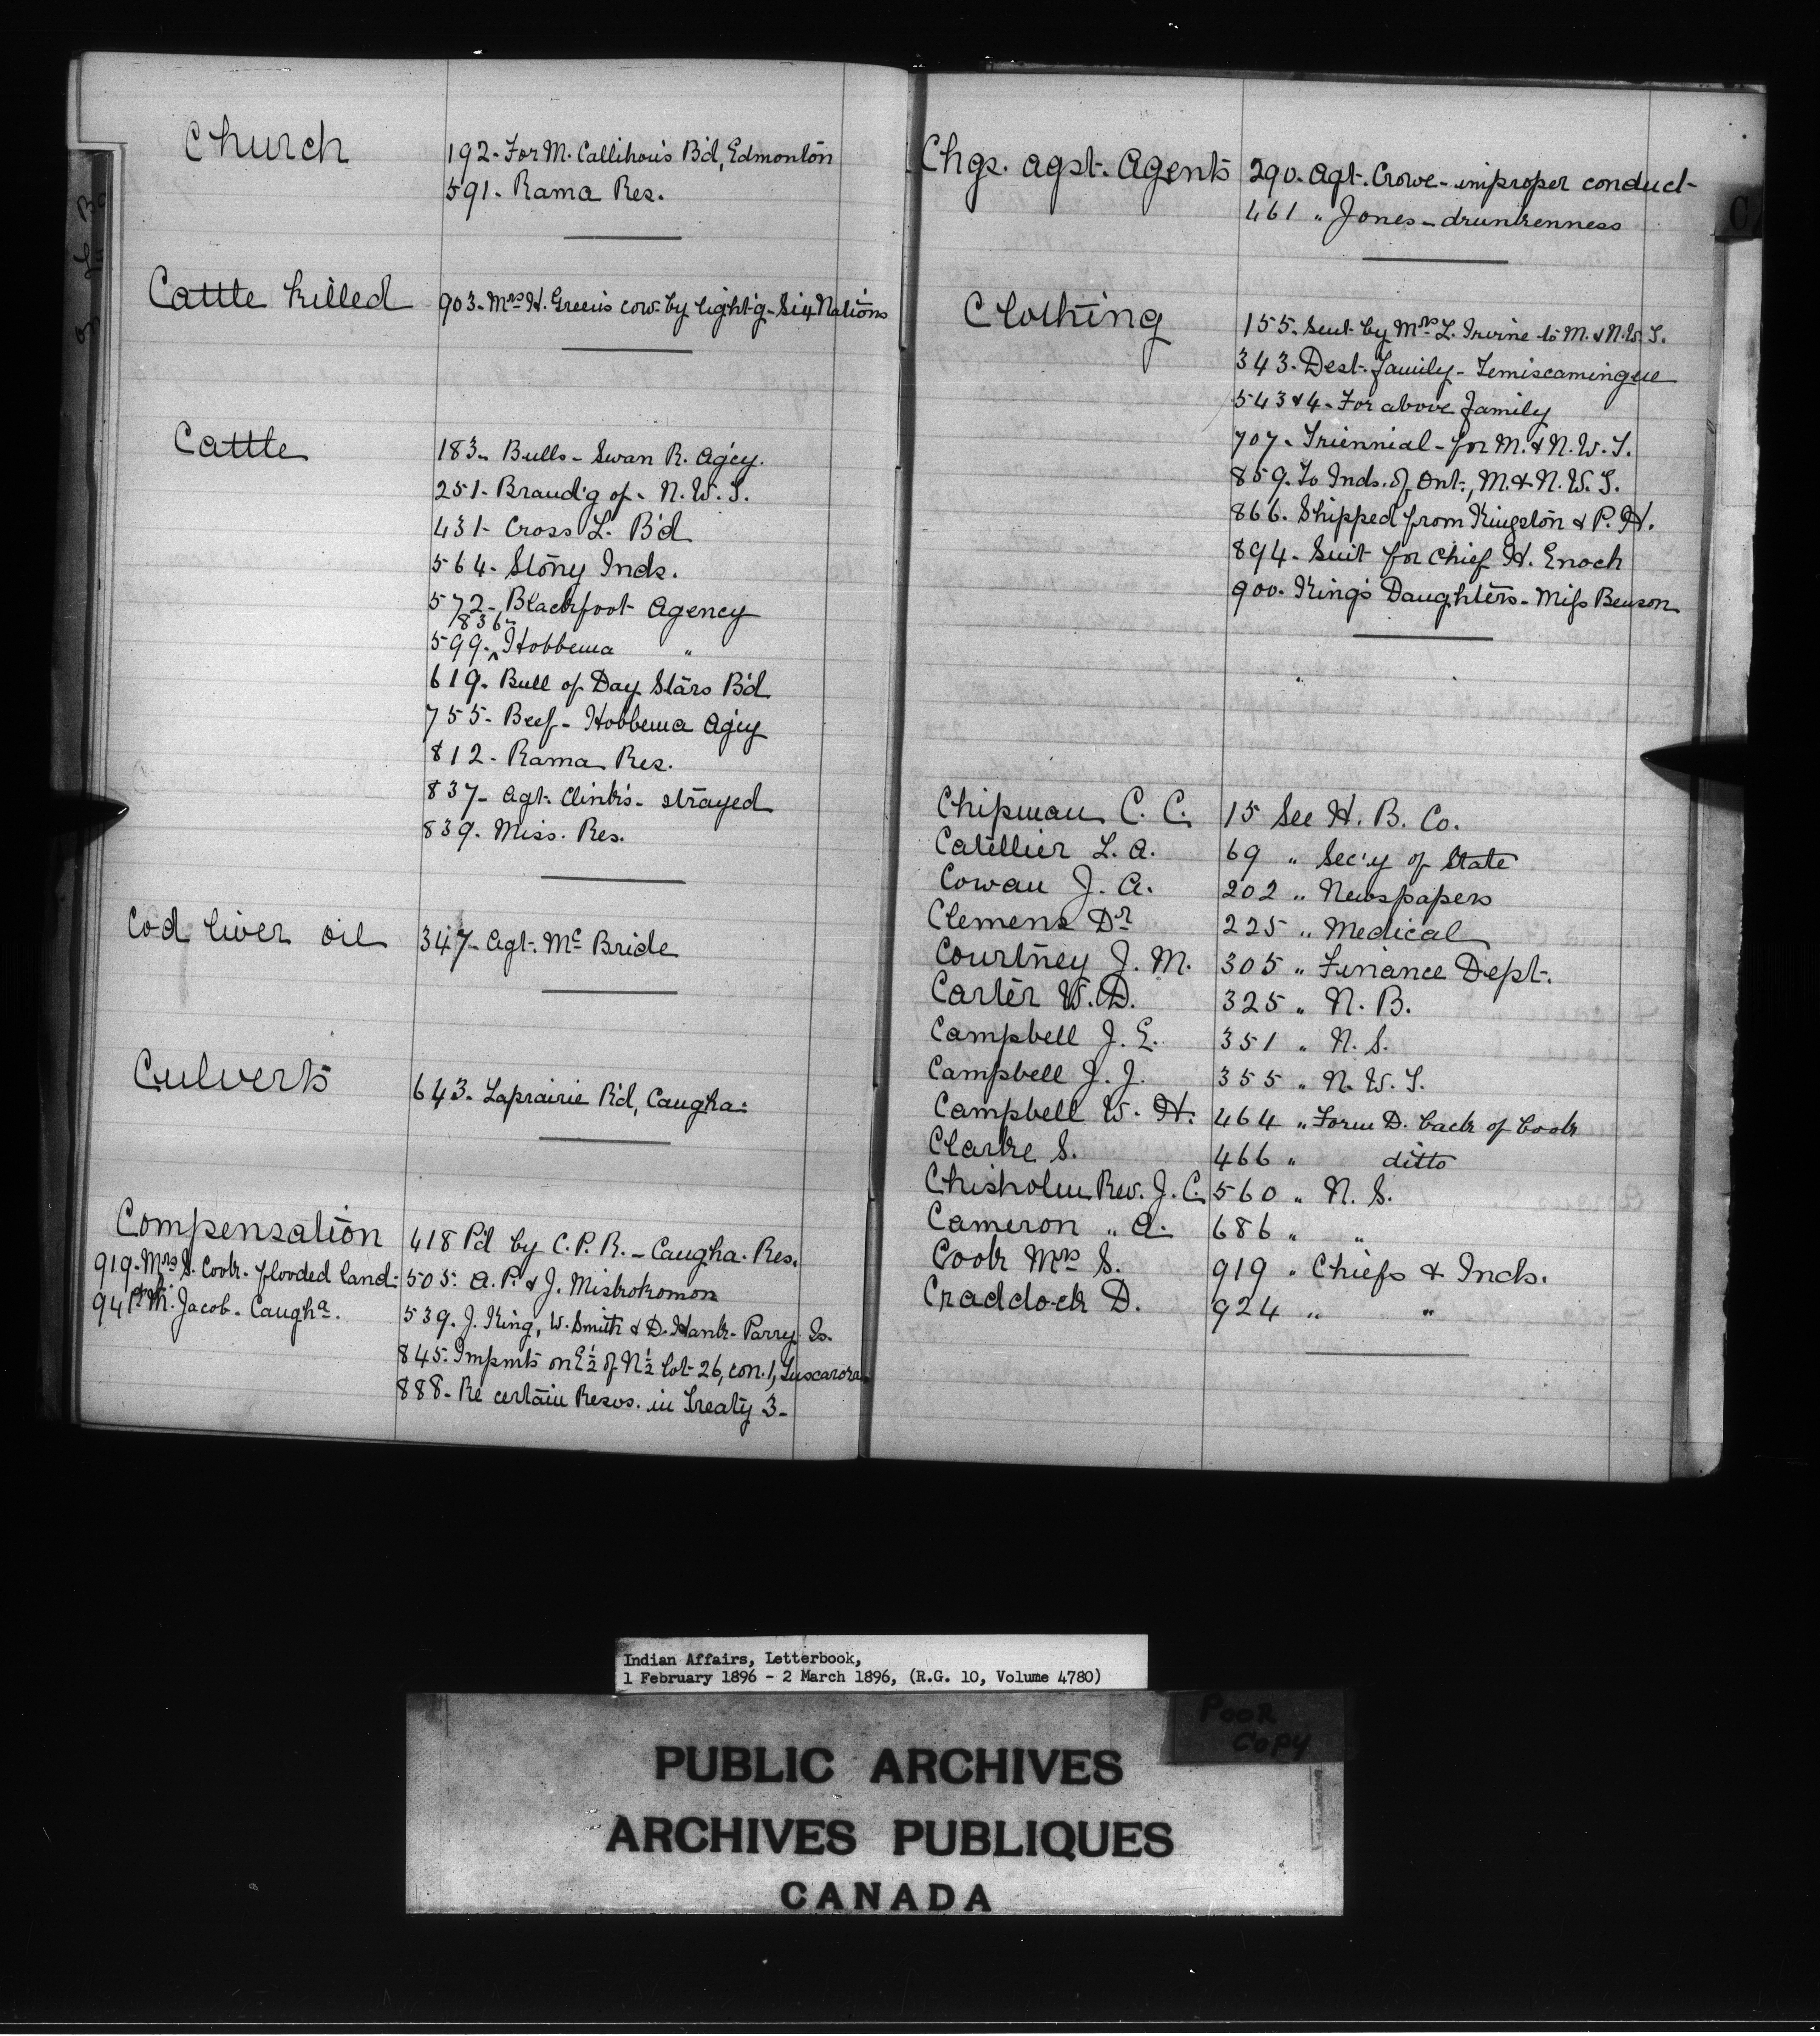 Church
192. For M. Callihou's B'd, Edmonton
591. Rama Res.
Cattle killed
903. Mrs H. Green's cow by light'g - Six Nations
Cattle
183. Bulls - Swan R. Ag'cy.
251. Brand'g of - N.W.T.
431. Cross L. B'd
564. Stony Inds.
572. Blackfoot Agency
836.
599. Hobbema "
619. Bull of Day Stars B'd
755. Beef - Hobbema Ag'cy
812. Rama Res.
837. Agt. Clink's - strayed
839. Miss. Res.
Cod liver oil
347. Agt. Mc Bride
Culverts
643. Laprairie R'd, Caugha:
Compensation
418 P'd by C.P.R. - Caugha. Res.
919. Mrs S. Cook. flooded land:
505. A. P. & J. Miskokomon
941 M. Jacob. Caugha.
539. J. King, W. Smith & D. Hank. Parry Is.
845. Impmts on E½ of N½ lot 26, con. 1, Tuscarora
888. Re certain Resvs. in Treaty 3.
Chgs. agst. Agents
290. Agt. Crowe - improper conduct
461 " Jones - drunkenness
Clothing
155. Sent by Mrs L. Irvine to M. & N.W.T.
343. Dest. family - Temiscamingue
543 & 4. For above family
707. Triennial - for M. & N.W.T.
859. To Inds. of Ont., M. & N.W.T.
866. Shipped from Kingston & P. H.
894. Suit for Chief H. Enoch
900. King's Daughters - Miss Benson
Chipman C. C. 15 See H. B. Co.
Catellier L. A. 69 " Sec'y of State
Cowan J. A. 202 " Newspapers
Clemens Dr 225 " Medical
Courtney J. M. 305 " Finance Dept.
Carter W. D. 325 " N. B.
Campbell J. E. 351 " N. S.
Campbell J. J. 355 " N. W. T.
Campbell W. H. 464 " Form D. back of book
Clarke S. 466 " ditto
Chisholm Rev. J. C. 560 " N. S.
Cameron " A. 686 " "
Cook Mrs S. 919 " Chiefs & Inds.
Craddock D. 924 " "
Indian Affairs, Letterbook,
1 February 1896 - 2 March 1896, (R.G. 10, Volume 4780)
POOR
COPY
PUBLIC ARCHIVES
ARCHIVES PUBLIQUES
CANADA